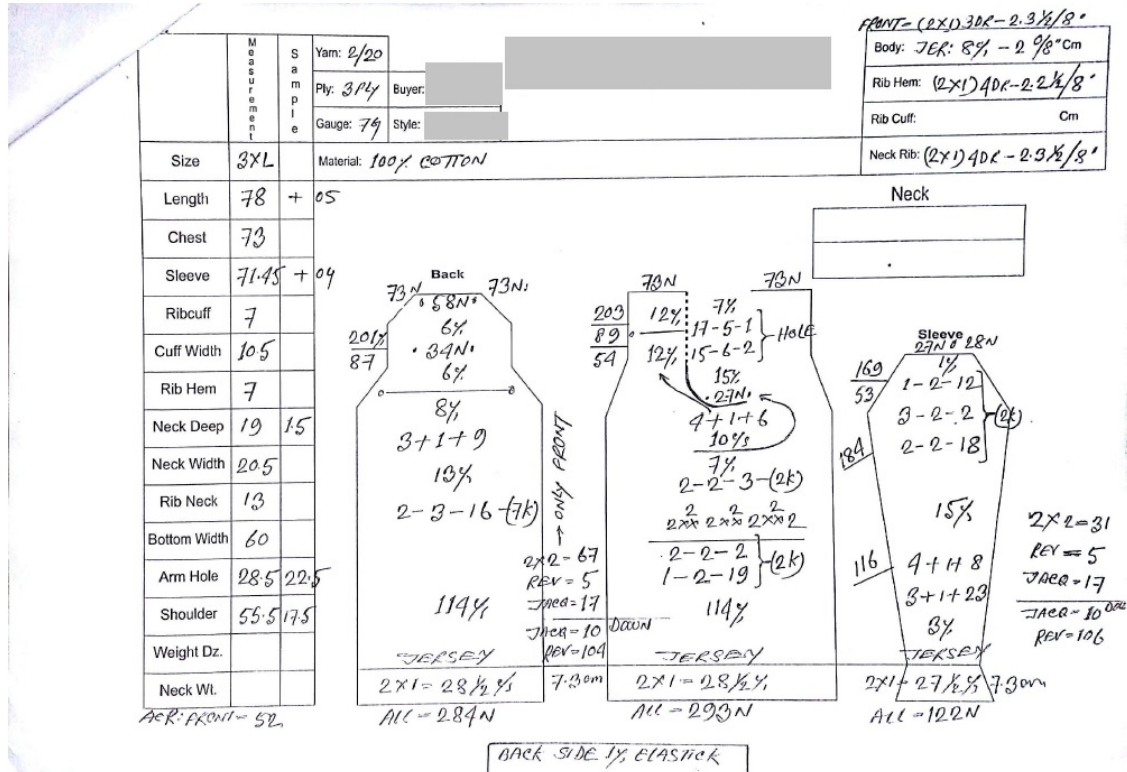 FRONT - (2X1) 3DR - 2.3 1/2/8"
Measurement
Sample
Yarn: 2/20
Ply: 3PLY
Buyer:
Gauge: 7G
Style:
Body: JER: 8% - 2 0/8" Cm
Rib Hem: (2X1) 4DR - 2.2 1/2/8"
Rib Cuff: Cm
Neck Rib: (2X1) 4DR - 2.3 1/2/8"
Size 3XL
Material: 100% COTTON
Length 78 + 05
Chest 73
Sleeve 71.45 + 04
Ribcuff 7
Cuff Width 10.5
Rib Hem 7
Neck Deep 19 1.5
Neck Width 20.5
Rib Neck 13
Bottom Width 60
Arm Hole 28.5 22.5
Shoulder 55.5 17.5
Weight Dz.
Neck Wt.
ACR: FRONT = 52
Neck
Back
73N 58N 73N
6%
34N
6%
201%
87
8%
3+1+9
13%
2-3-16-(7K)
114%
JERSEY
2X1 = 28 1/2 %
ALL = 284N
→ ONLY FRONT
2X2 = 67
REV = 5
JACQ = 17
JACQ = 10 DOWN
REV = 104
7.3cm
73N 73N
203
89
54
12%
12%
7%
17-5-1
15-6-2
HOLE
15%
27N
4+1+6
10%
7%
2-2-3-(2K)
2 2 2
2xx 2xx 2xx 2
2-2-2
1-2-19
(2K)
114%
JERSEY
2X1 = 28 1/2 %
ALL = 293N
Sleeve
27N 28N
169
53
1%
1-2-12
3-2-2
2-2-18
(2K)
184
15%
116
4+1+8
3+1+23
3%
JERSEY
2X1 = 27 1/2 % 7.3cm
ALL = 122N
2X2 = 31
REV = 5
JACQ = 17
JACQ = 10 DOWN
REV = 106
BACK SIDE 1% ELASTICK